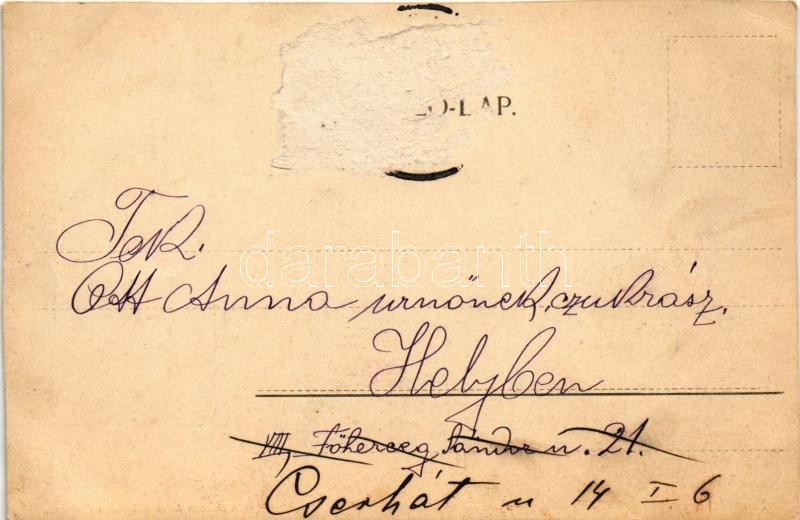 ZÕ-LAP.
Tek.
Ott Anna urnőnek, czukrász.
darabanth
Helyben
VIII, Főherceg Sándor u. 21.
Cserhát u 14 I 6